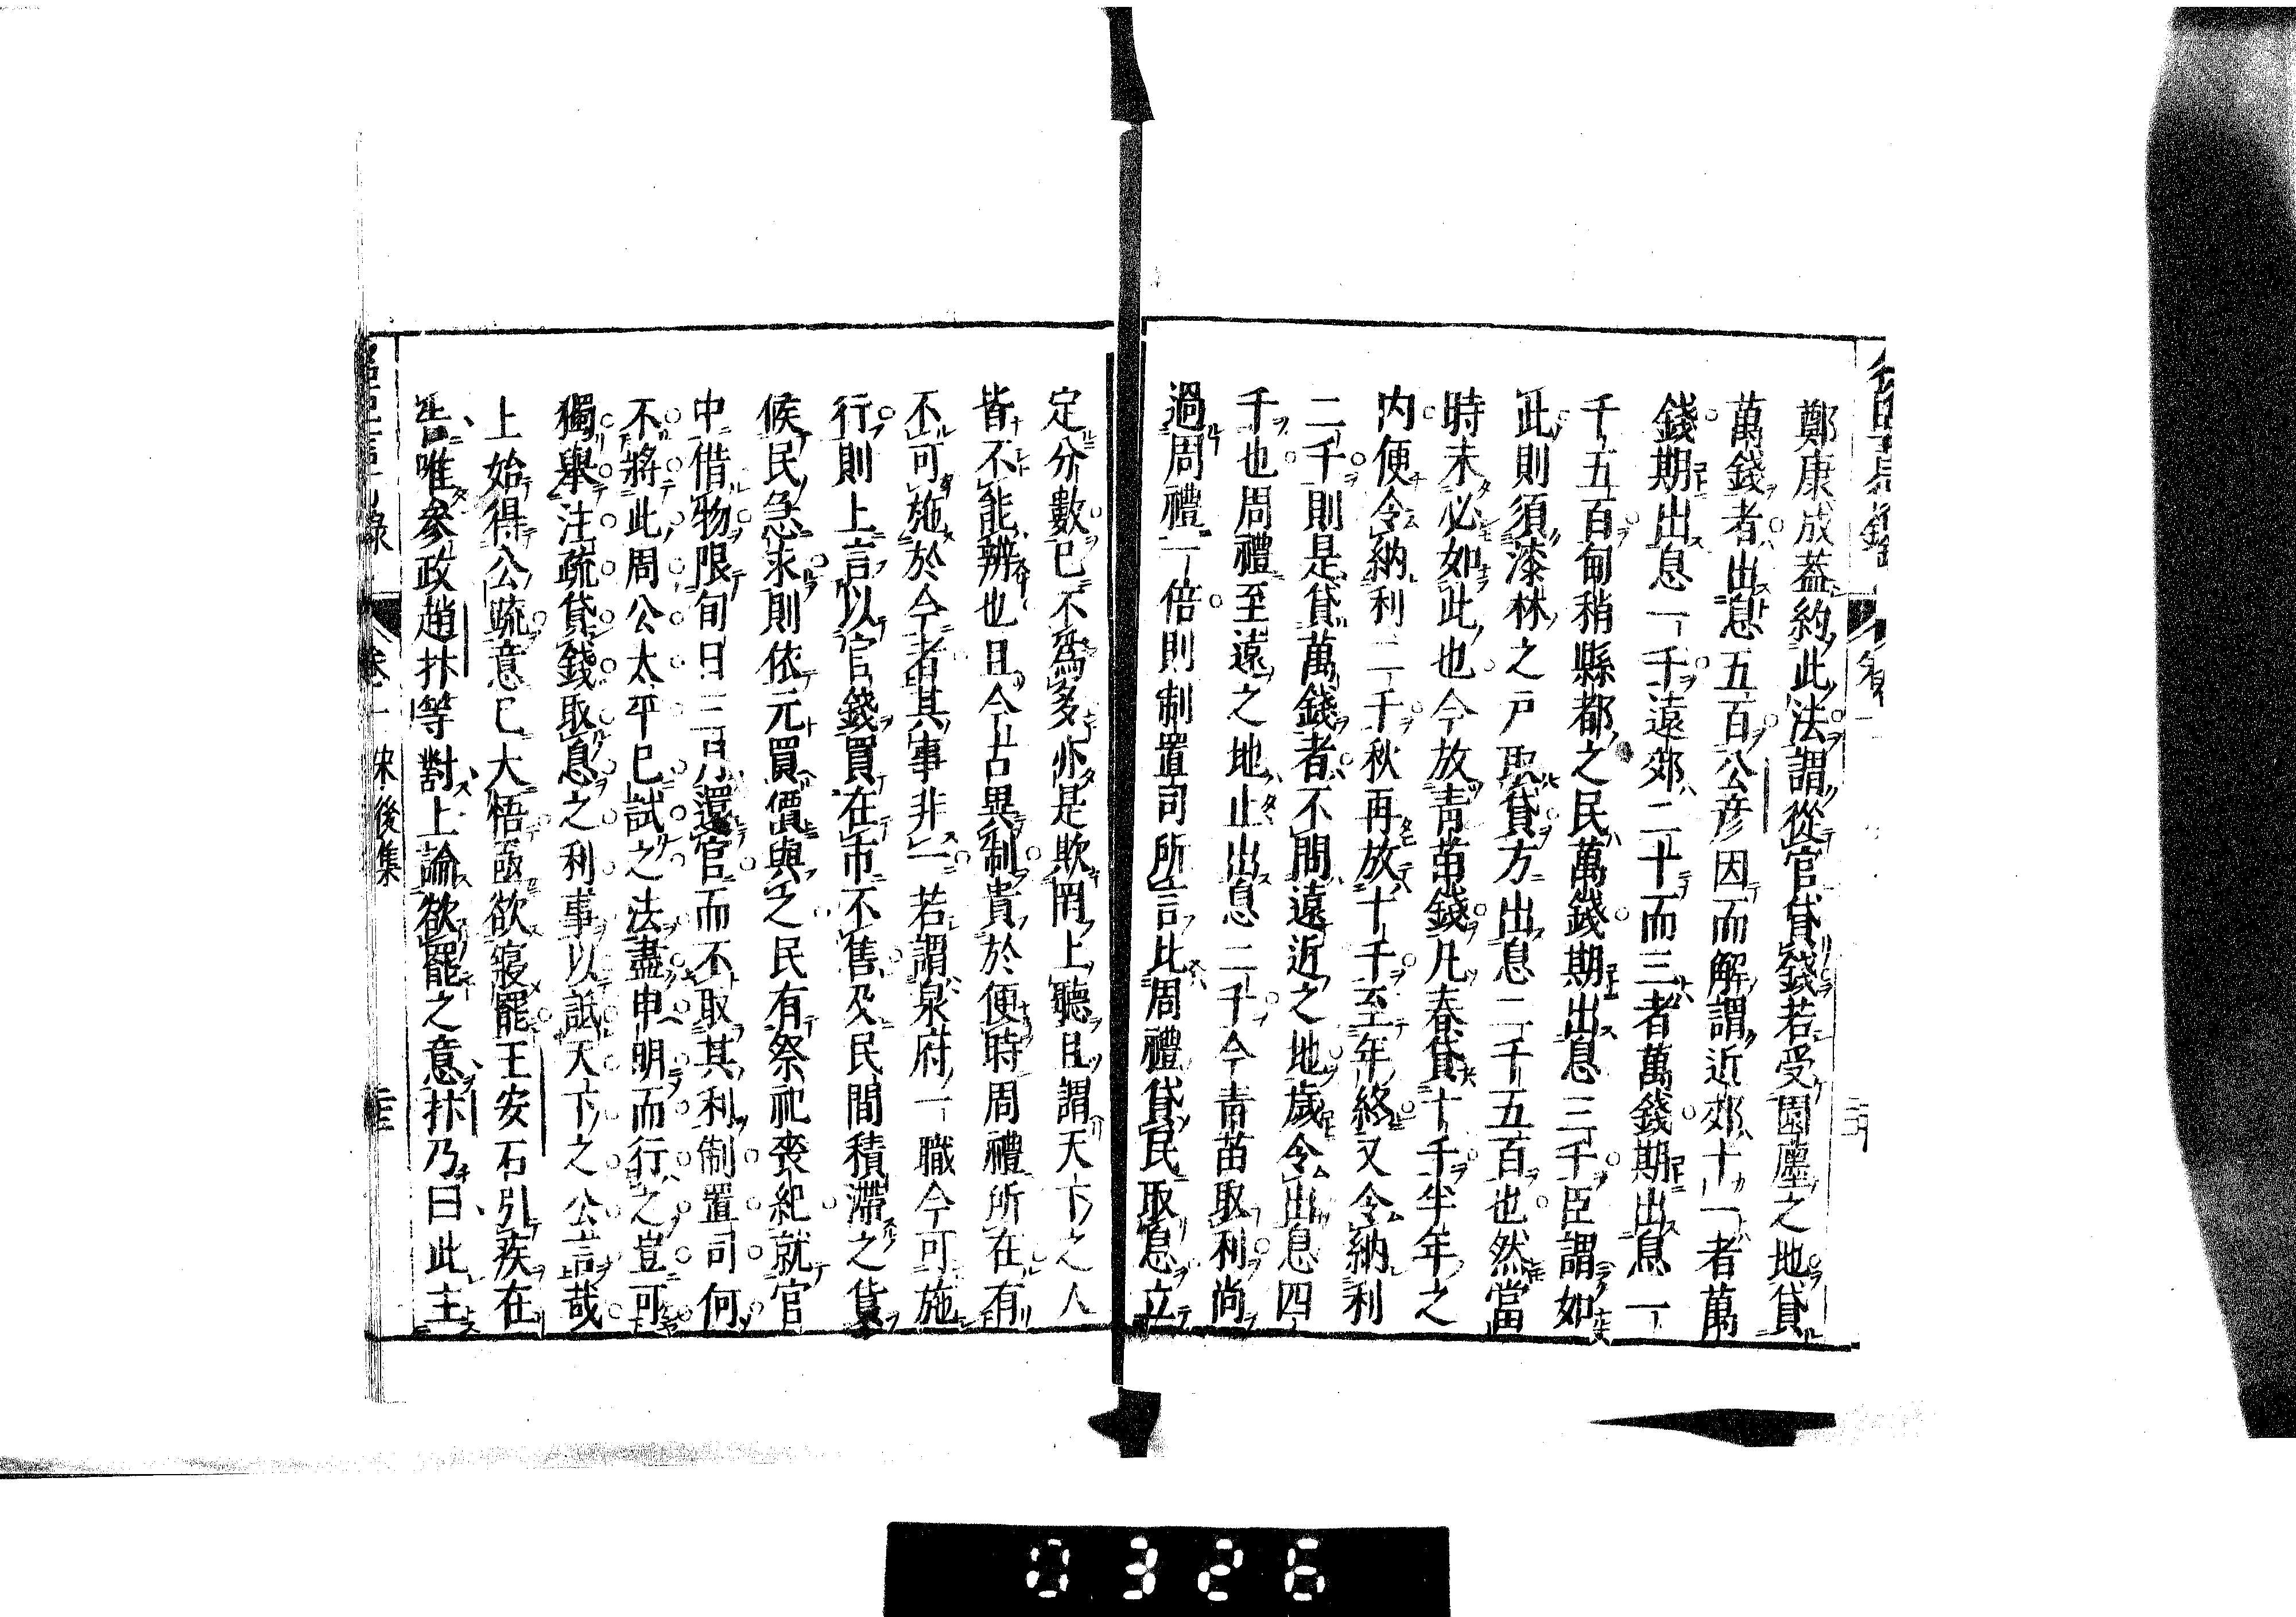 鄭康成蓋約此法謂從官貸錢若受園廛之地貸
萬錢者出息五百公彦因而解謂近郊十一者萬
錢期出息一千遠郊二十而三者萬錢期出息一
千五百甸稍縣都之民萬錢期出息二千臣謂如
此則須漆林之戸取貸方出息二千五百也然當
時未必如此也今放青苗錢凡春貸十千半年之
内便令納利二千秋再放十千至年終又令納利
二千則是貸萬錢者不問遠近之地歲令出息四
千也周禮至遠之地止出息二千今青苗取利尚
過周禮一倍則制置司所言比周禮貸民取息立
定分數已不為多亦是欺罔上聽且謂天下之人
皆不能辨也且今古異制貴於便時周禮所在有
不可施於今者其事非一若謂泉府一職今可施
行則上言以官錢買在市不售及民間積滯之貨
候民急求則依元買價與之民有祭祀喪紀就官
中借物限旬日三月還官而不取其利制置司何
不將此周公太平已試之法盡申明而行之豈可
獨舉注疏貸錢取息之利事以詆天下之公言哉
上始得公疏意已大悟亟欲寢罷王安石引疾在
告唯參政趙抃等對上諭欲罷之意抃乃曰此主
卷一 宋後集
0326